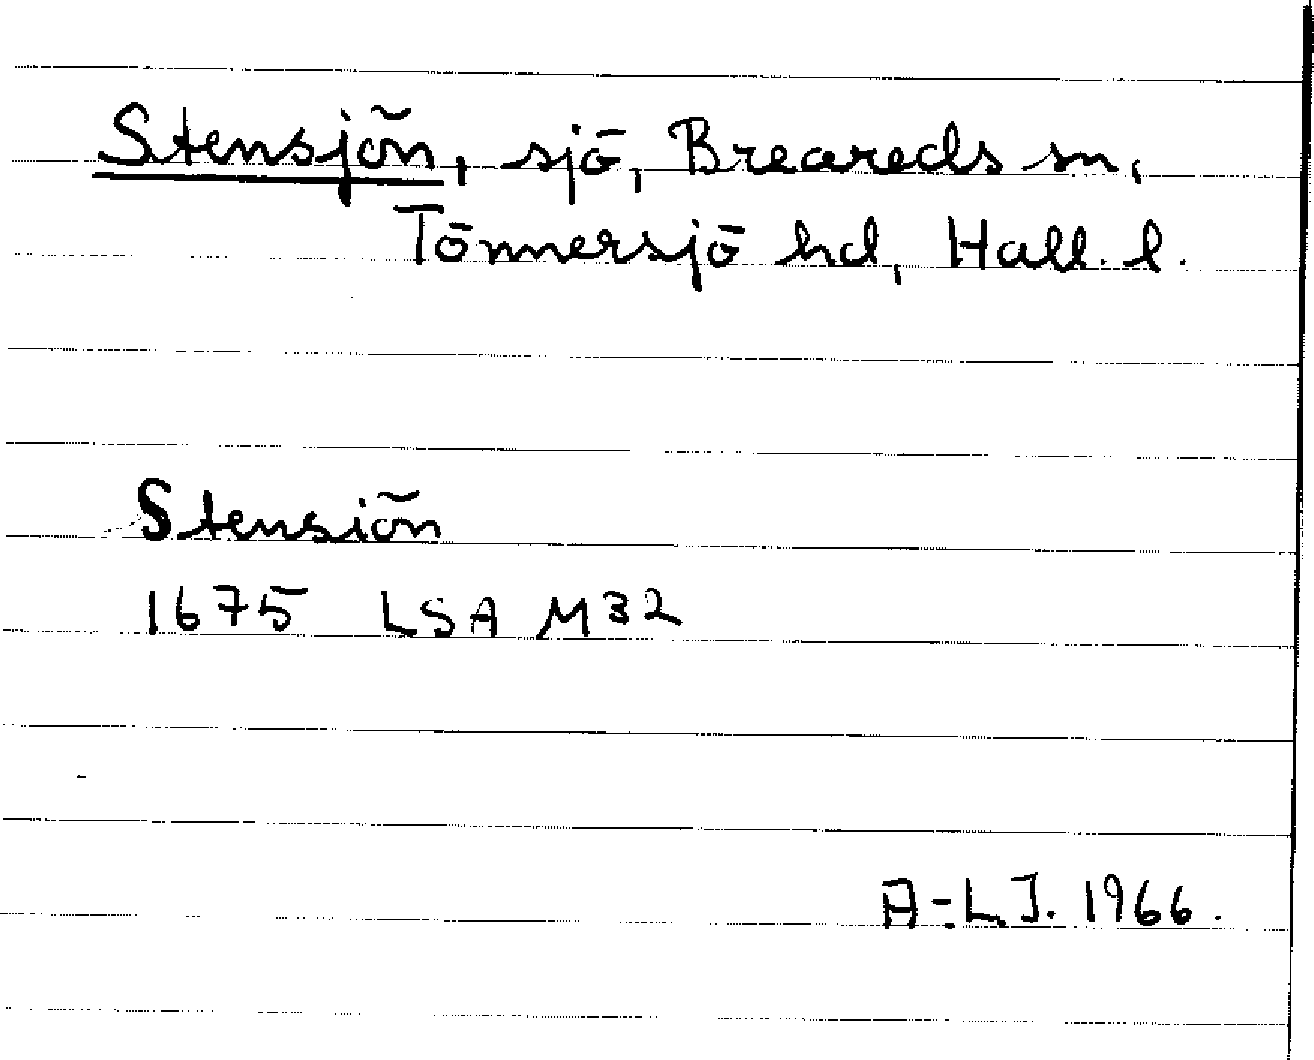 Stensjön, sjö, Breareds sn,
Tönnersjö hd, Hall. l.
Stensiön
1675 LSA M32
A-L.J. 1966.